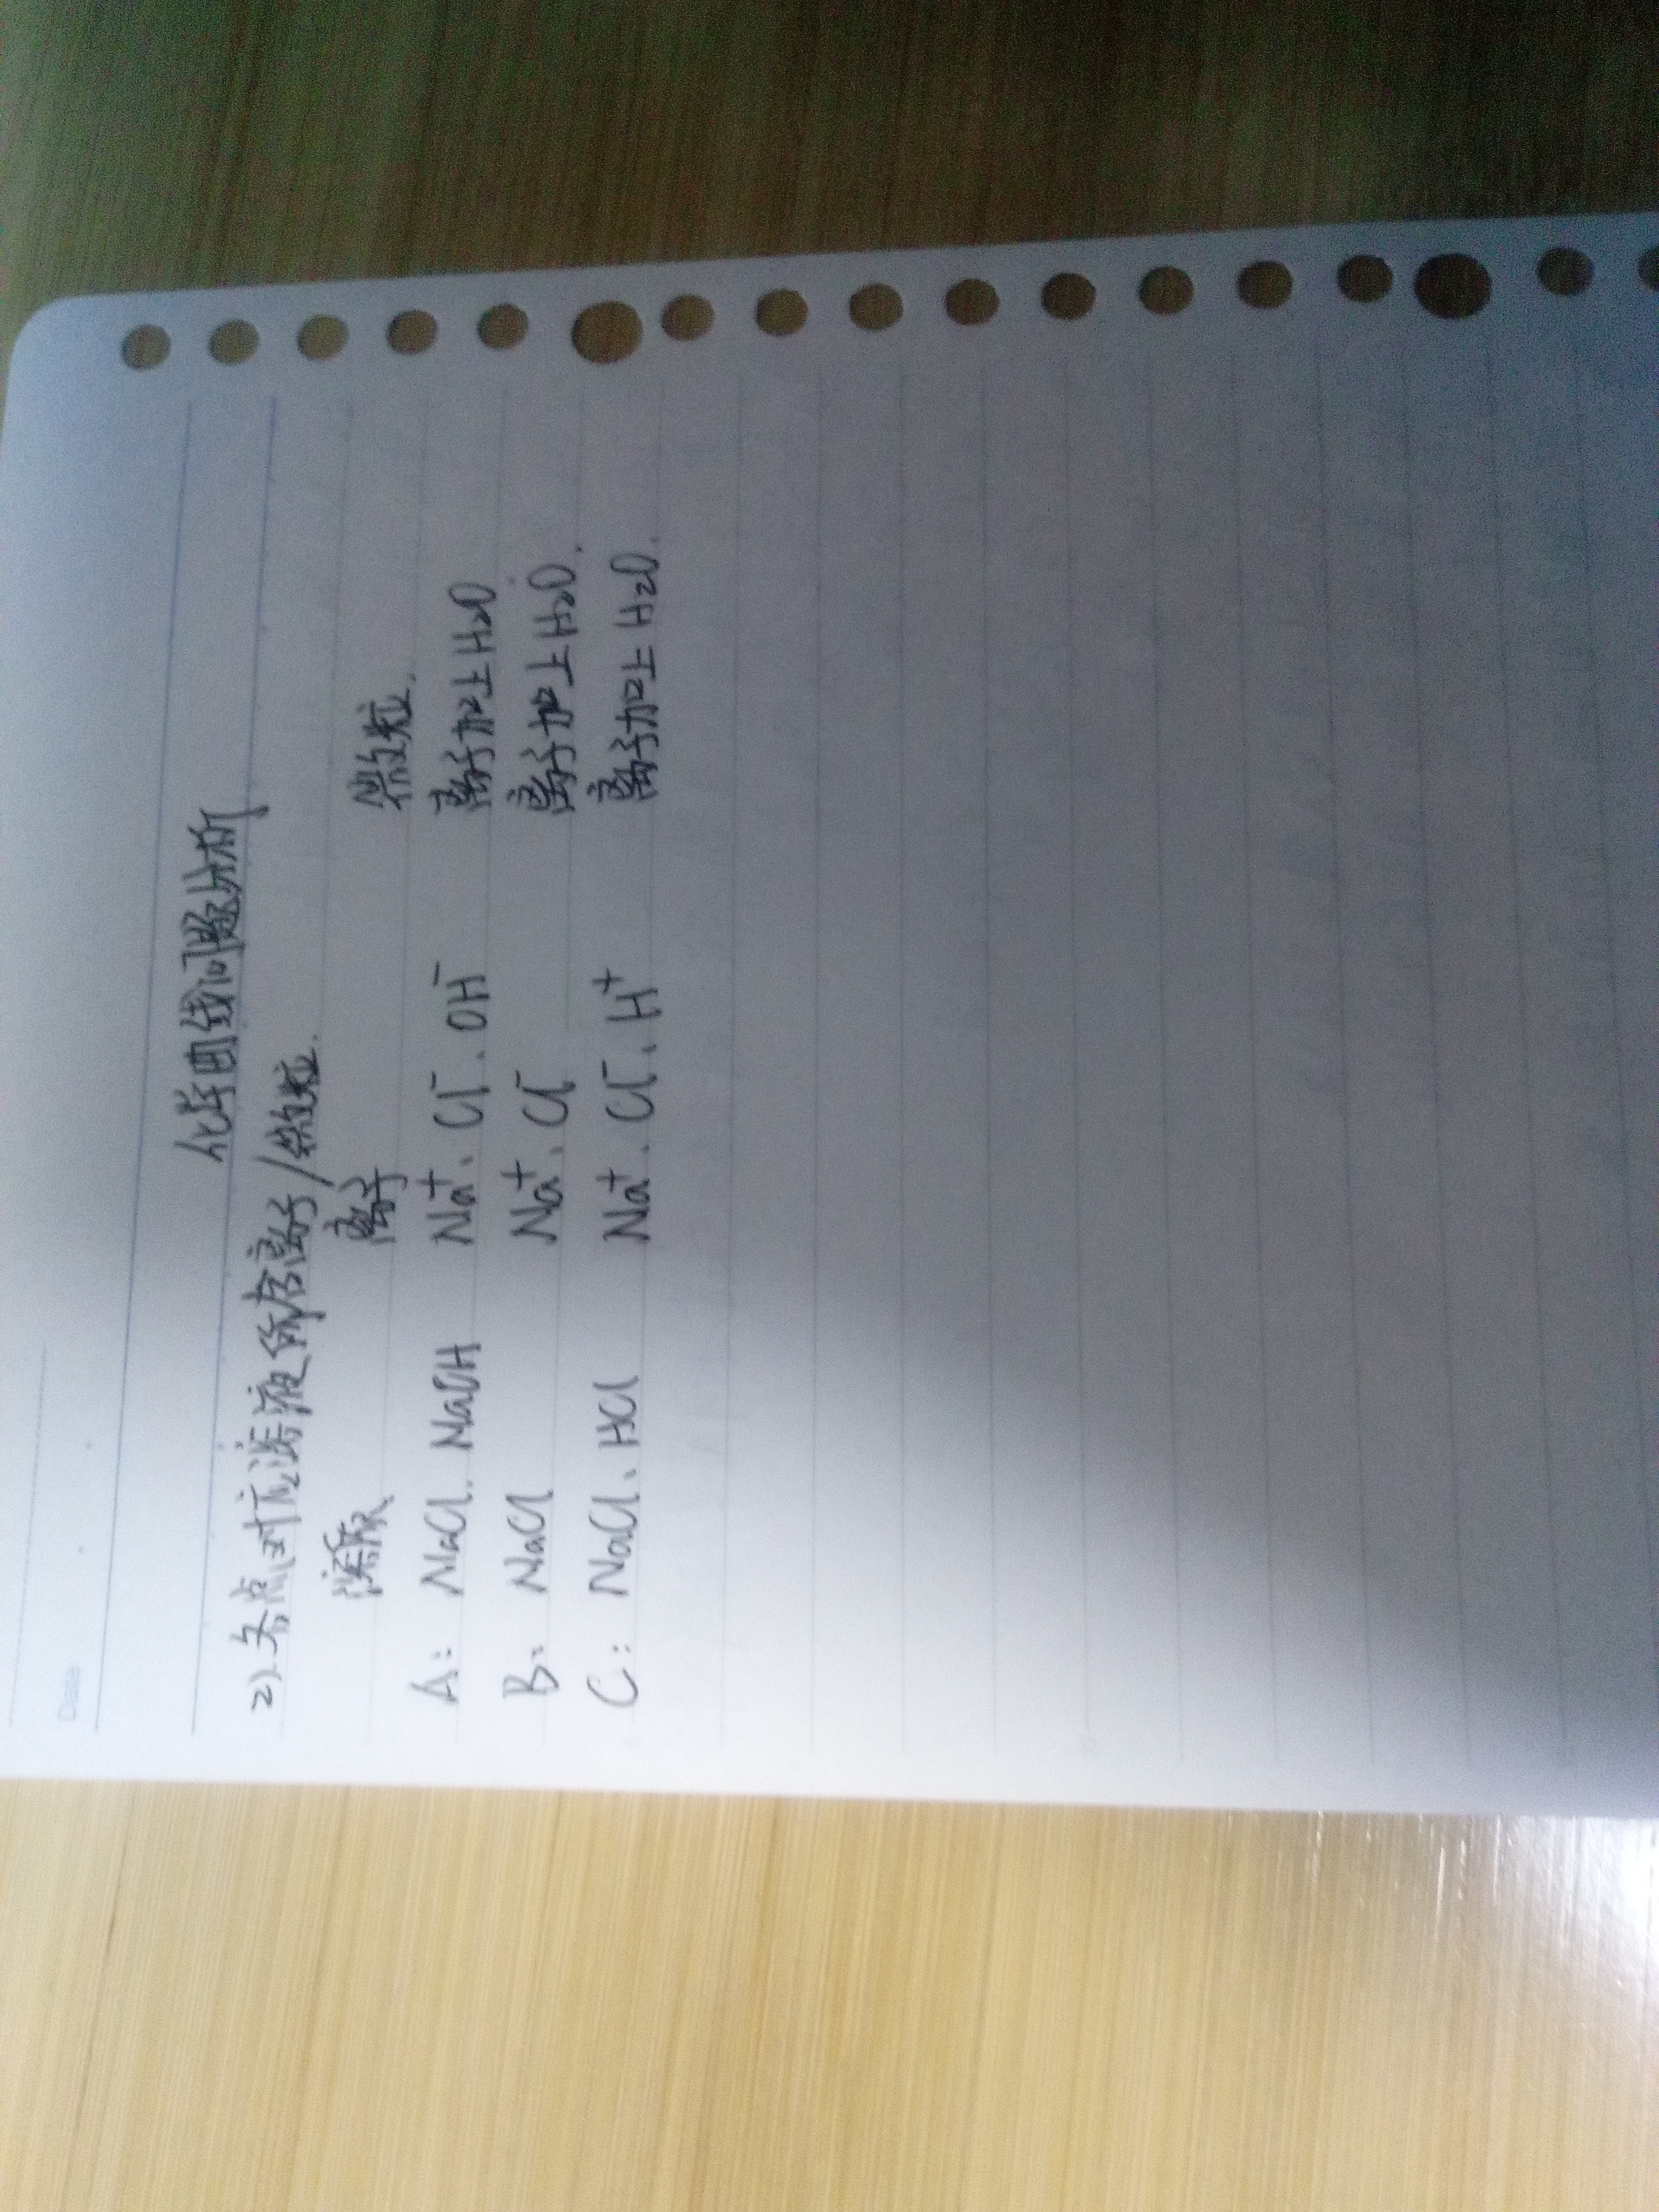 Date
化学曲线问题分析
2).各点对应溶液所含离子/微粒.
溶质 离子 微粒.
A: NaCl. NaOH Na⁺、Cl⁻、OH⁻ 离子加上H₂O
B: NaCl Na⁺、Cl⁻ 离子加上H₂O.
C: NaCl、HCl Na⁺、Cl⁻、H⁺ 离子加上H₂O.